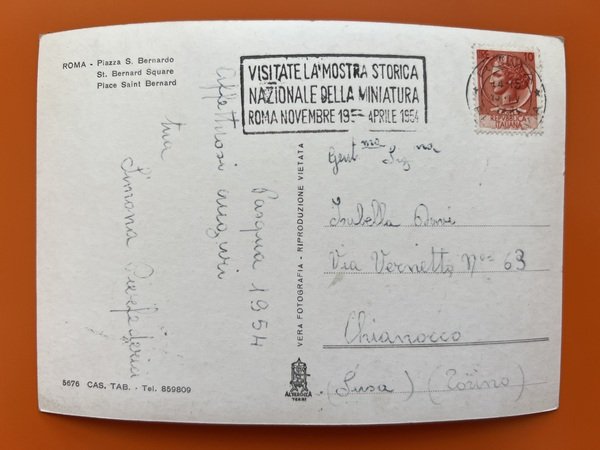 ROMA - Piazza S. Bernardo
St. Bernard Square
Place Saint Bernard
VISITATE LA MOSTRA STORICA
NAZIONALE DELLA MINIATURA
ROMA NOVEMBRE 1953 APRILE 1954
10
REPUBBLICA
ITALIANA
Pasqua 1954
Affettuosi auguri
tua
Simona
VERA FOTOGRAFIA - RIPRODUZIONE VIETATA
Gent.ma Sig.na
Isabella
Via Vernetto N° 63
Chianocco
(Susa) (Torino)
5676 CAS. TAB. - Tel. 859809
ALTEROCCA
TERNI